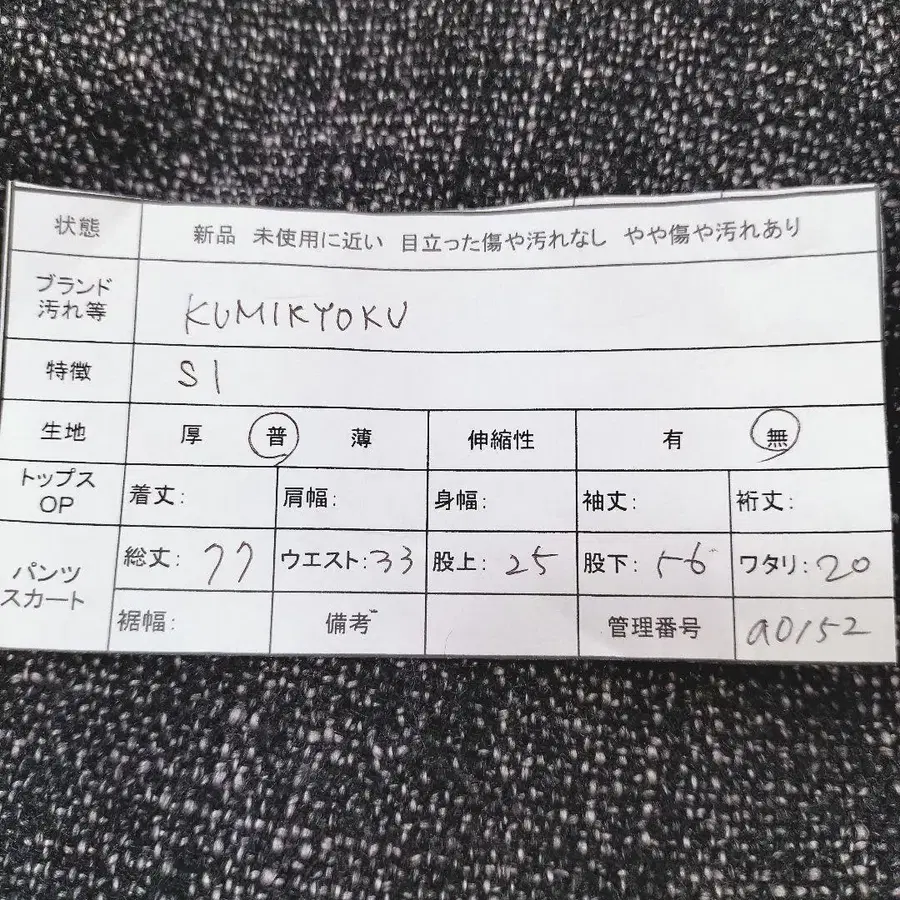 状態 新品 未使用に近い 目立った傷や汚れなし やや傷や汚れあり
ブランド
汚れ等 KUMIKYOKU
特徴 S1
生地 厚 普 薄 伸縮性 有 無
トップス
OP 着丈: 肩幅: 身幅: 袖丈: 裄丈:
パンツ
スカート
総丈: 77 ウエスト: 33 股上: 25 股下: 56 ワタリ: 20
裾幅: 備考 管理番号 a0152